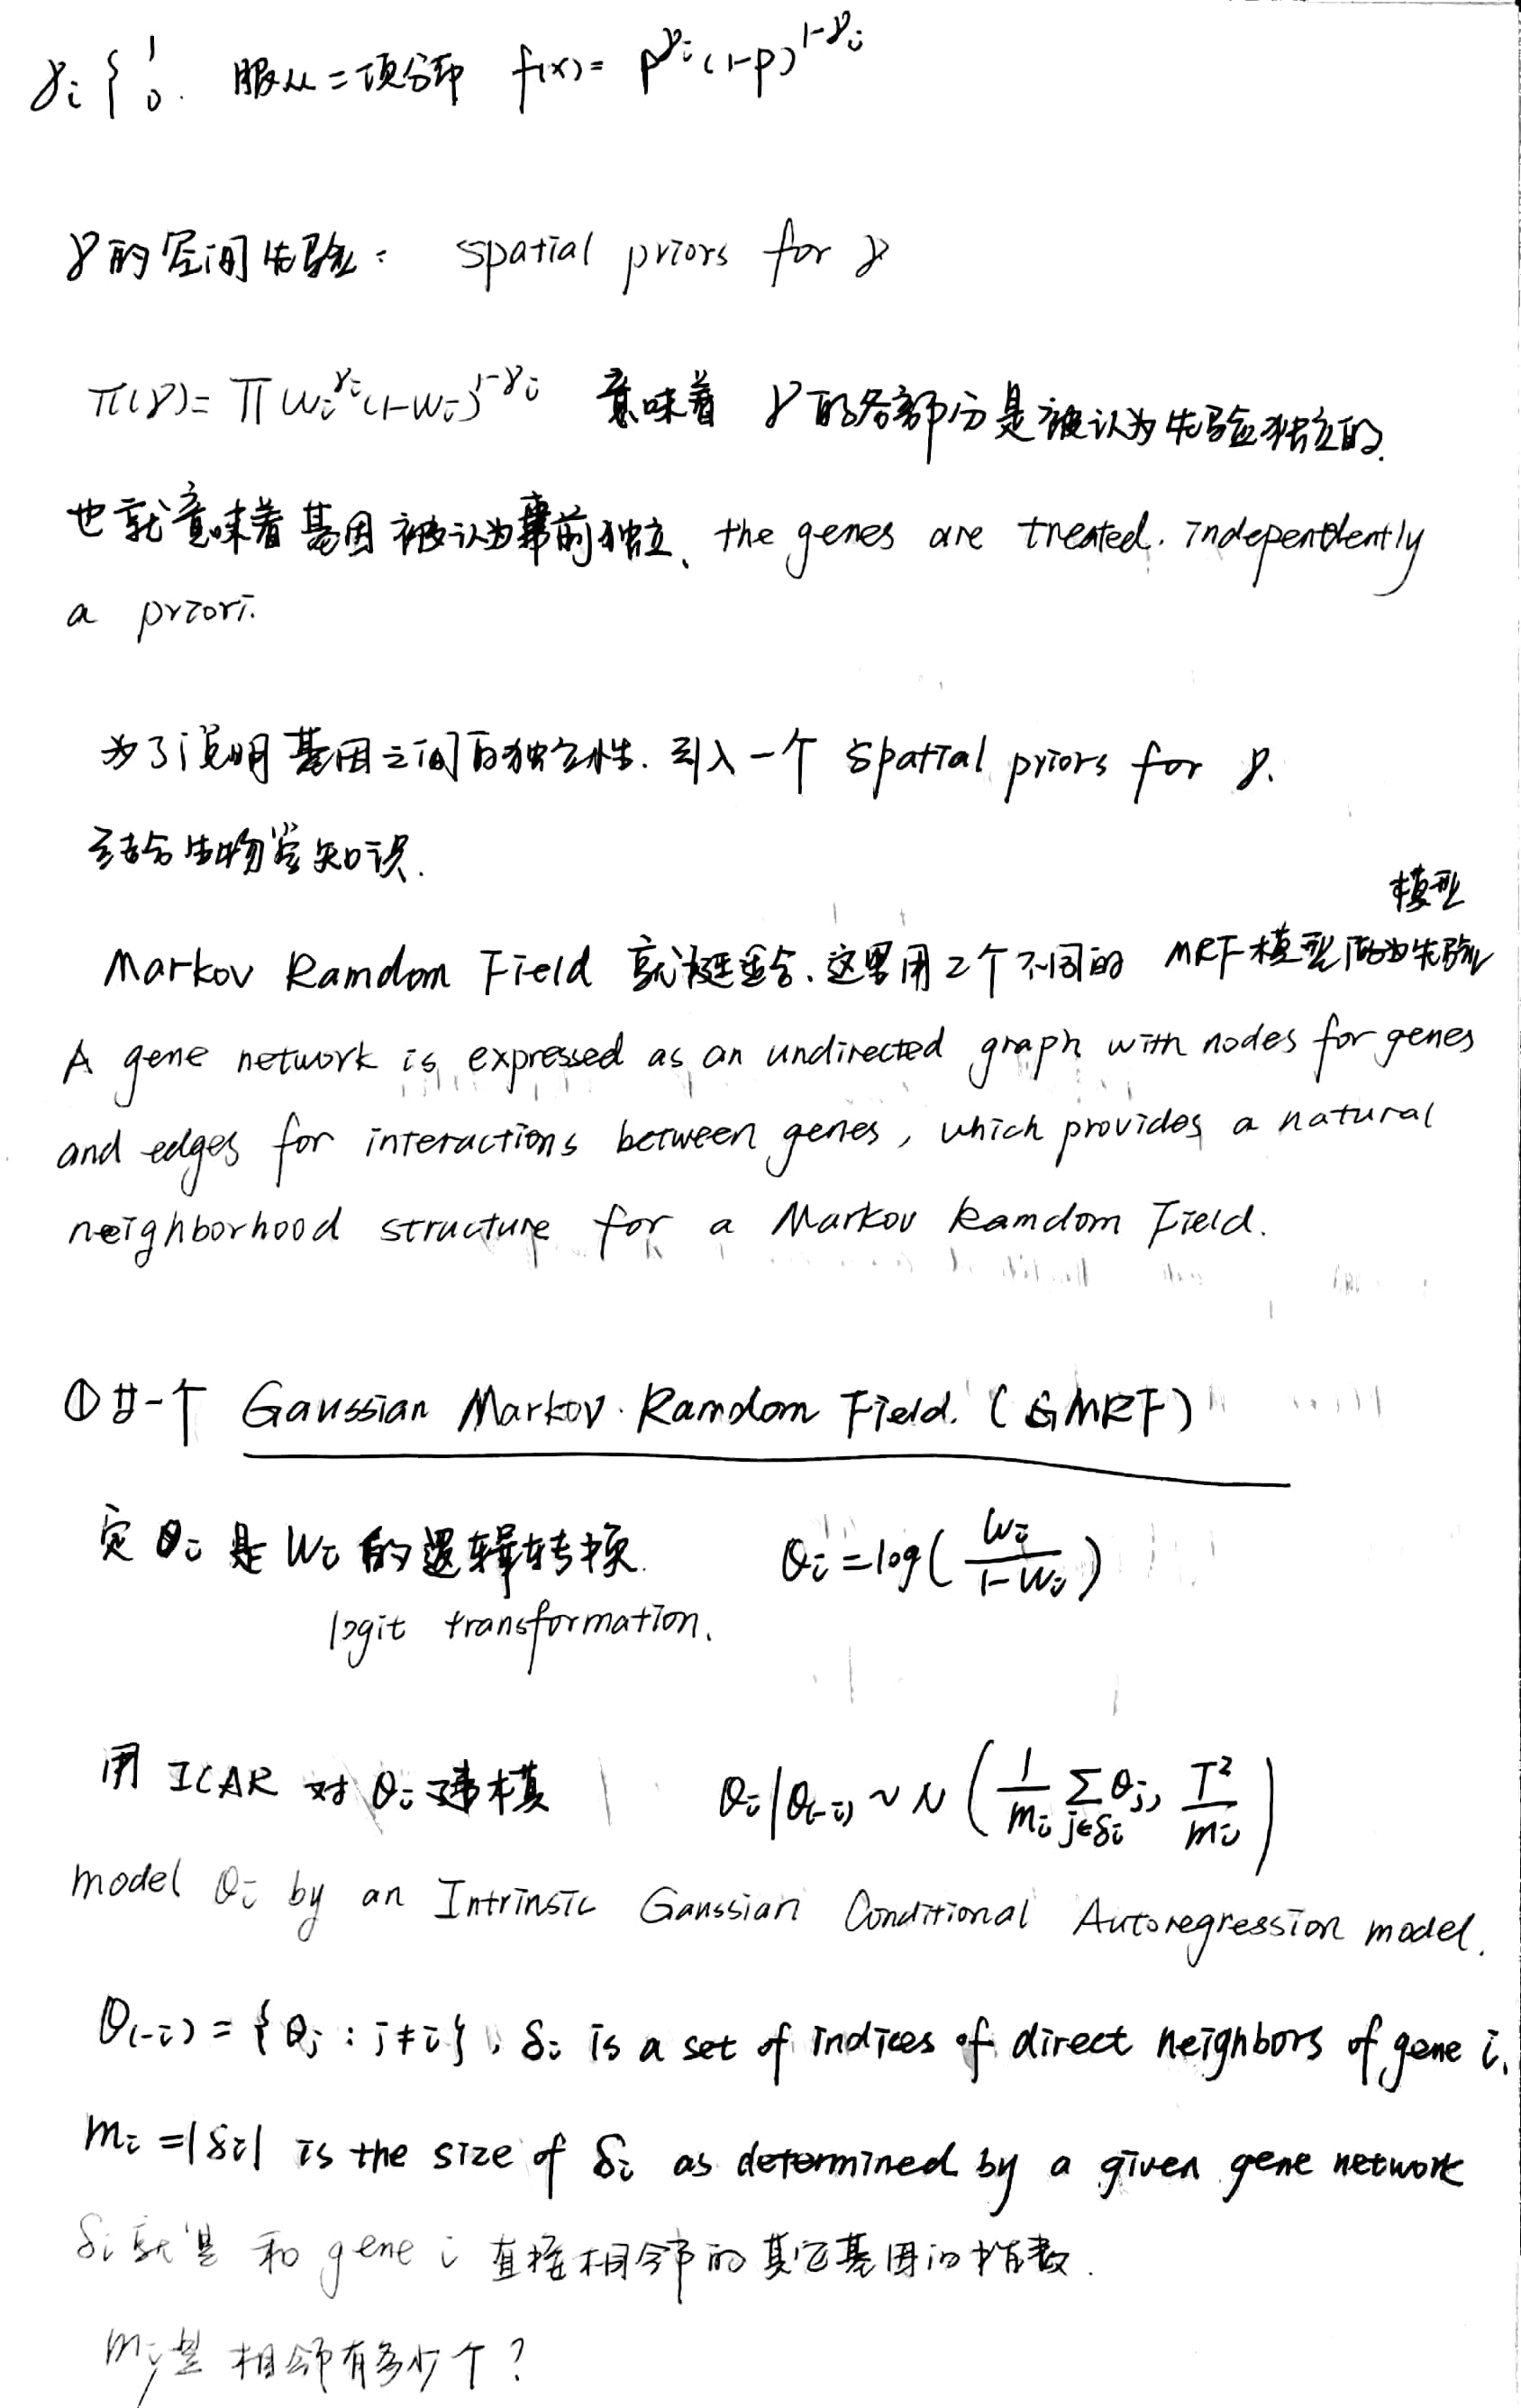 γi { 1 0. 服从二项分布 f(x)= p^γi (1-p)^1-γi
γ的空间先验: spatial priors for γ
π(γ)= ∏ wi^γi (1-wi)^1-γi 意味着 γ的各部分是被认为先验独立的.
也就意味着基因被认为事前独立、the genes are treated. independently
a priori.
为了说明基因之间的独立性. 引入一个 spatial priors for γ.
结合生物学知识.
模型
Markov Ramdom Field 就挺适合. 这里用2个不同的 MRF模型做为先验
A gene network is expressed as an undirected graph with nodes for genes
and edges for interactions between genes, which provides a natural
neighborhood structure for a Markov Ramdom Field.
① 第一个 Gaussian Markov. Ramdom Field. (GMRF)
定 θi 是 Wi 的逻辑转换. θi = log( wi / 1-wi )
logit transformation.
用 ICAR 对 θi 建模 θi | θ(-i) ~ N ( 1/mi ∑j∈δi θj, τ²/mi )
model θi by an Intrinsic Gaussian Conditional Autoregression model.
θ(-i) = {θj : j≠i}, δi is a set of indices of direct neighbors of gene i.
mi =|δi| is the size of δi as determined by a given gene network
δi 就是 和 gene i 直接相邻的其它基因的指数.
mi是 相邻有多少个?